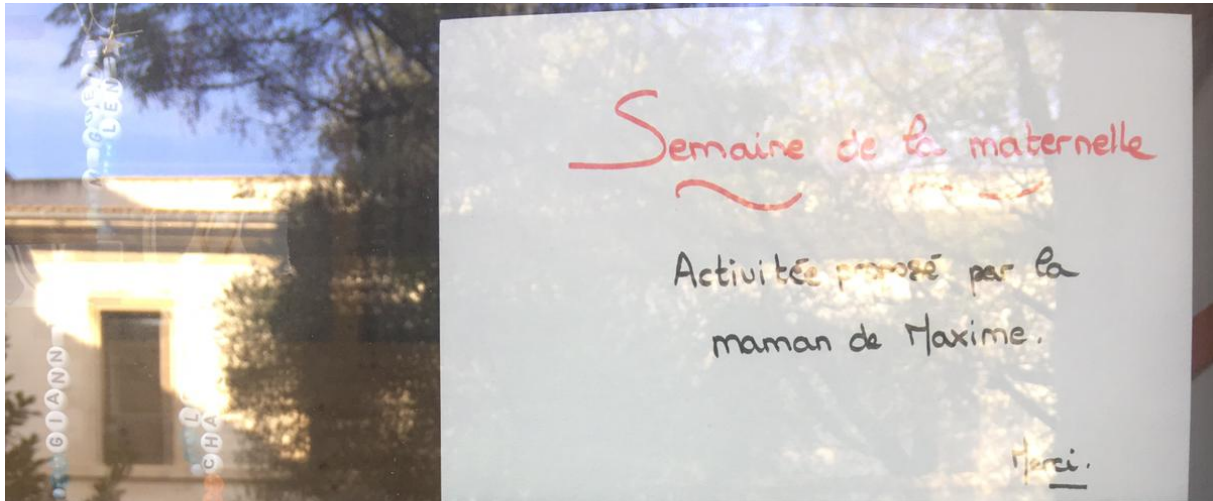 Semaine de la maternelle
Activitée proposé par la
maman de Maxime.
Merci.
GIANN